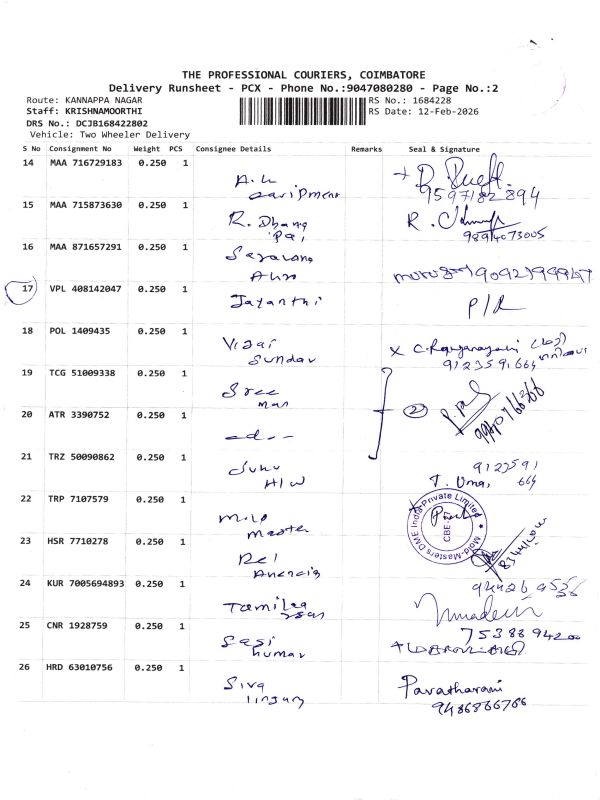 THE PROFESSIONAL COURIERS, COIMBATORE
Delivery Runsheet - PCX - Phone No.:9047080280 - Page No.:2
Route: KANNAPPA NAGAR
RS No.: 1684228
Staff: KRISHNAMOORTHI
RS Date: 12-Feb-2026
DRS No.: DCJB168422802
Vehicle: Two Wheeler Delivery
S No Consignment No Weight PCS Consignee Details Remarks Seal & Signature
14 MAA 716729183 0.250 1
A.K
9597182894
15 MAA 715873630 0.250 1
R. Dhana
Pal
R.
9894073005
16 MAA 871657291 0.250 1
Saravana
17 VPL 408142047 0.250 1
Jayanthi
P/R
18 POL 1409435 0.250 1
Vijai
Sundar
19 TCG 51009338 0.250 1
Sree
20 ATR 3390752 0.250 1
2
21 TRZ 50090862 0.250 1
H/W
T. Uma,
22 TRP 7107579 0.250 1
Master
Mold-Masters DME India Private Limited
CBE
23 HSR 7710278 0.250 1
24 KUR 7005694893 0.250 1
Tamila
25 CNR 1928759 0.250 1
Sasi
kumar
7538894200
26 HRD 63010756 0.250 1
Siva
lingam
Paratharani
9486866766